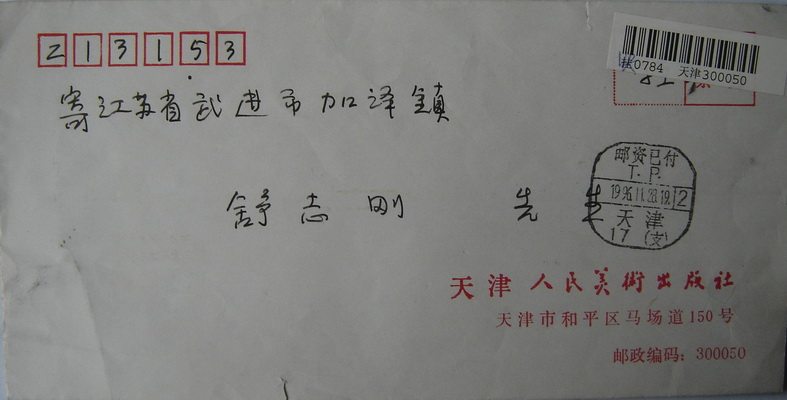 213153
挂0784 天津300050
寄江苏省武进市加泽镇
邮资已付
T.P.
1996.11.28.19 12
天津
17(支)
舒志刚 先生
天津人民美術出版社
天津市和平区马场道150号
邮政编码：300050